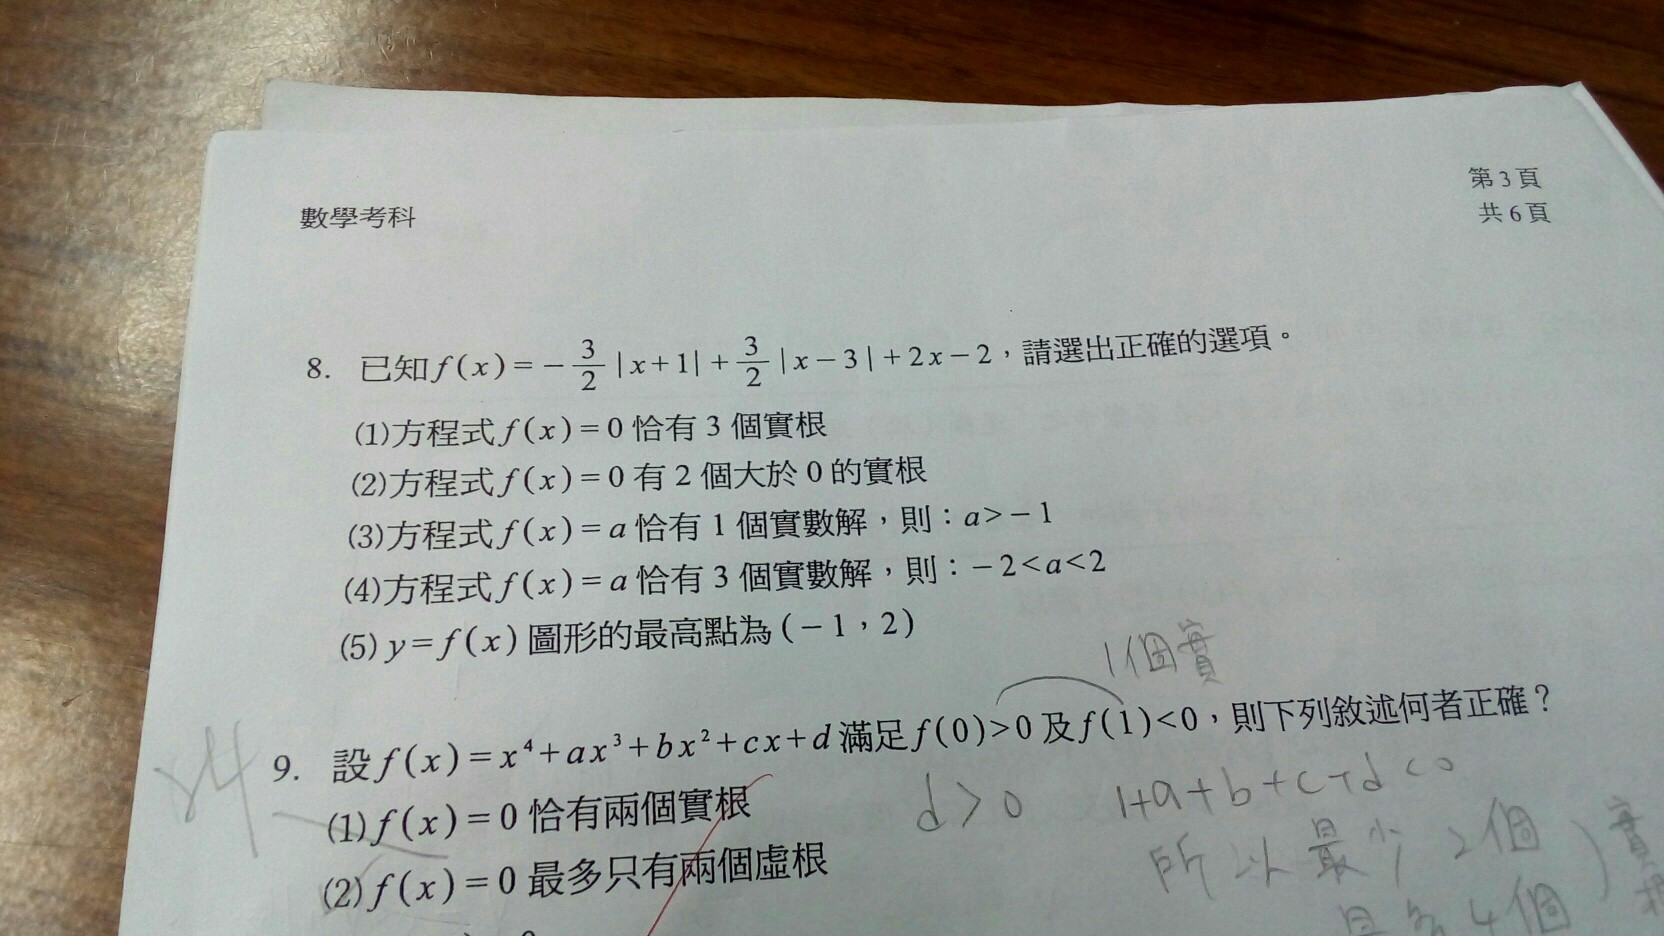 數學考科
第3頁
共6頁
8. 已知f(x)=-\frac{3}{2}|x+1|+\frac{3}{2}|x-3|+2x-2，請選出正確的選項。
(1)方程式f(x)=0恰有3個實根
(2)方程式f(x)=0有2個大於0的實根
(3)方程式f(x)=a恰有1個實數解，則：a>-1
(4)方程式f(x)=a恰有3個實數解，則：-2<a<2
(5)y=f(x)圖形的最高點為(-1，2)
1個實
9. 設f(x)=x⁴+ax³+bx²+cx+d滿足f(0)>0及f(1)<0，則下列敘述何者正確？
d>0 1+a+b+c+d<0
(1)f(x)=0恰有兩個實根
所以最少2個
(2)f(x)=0最多只有兩個虛根
4個
實